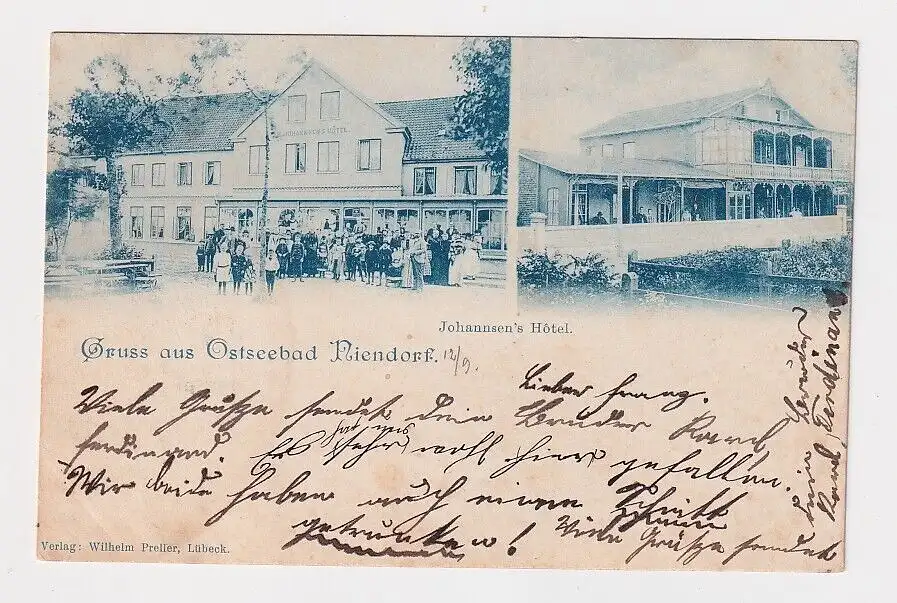 JOHANNSEN'S HÔTEL.
Johannsen's Hôtel.
Gruss aus Ostseebad Niendorf.
12/9.
Lieber Franz.
Viele Grüße sendet dein Bruder Karl
Ferdinand. Es hat uns sehr wohl hier gefallen.
Wir beide haben auch einen Schnitt
getrunken! Viele Grüße sendet
dein Bruder
Karl, Ferdinand
Verlag: Wilhelm Preller, Lübeck.